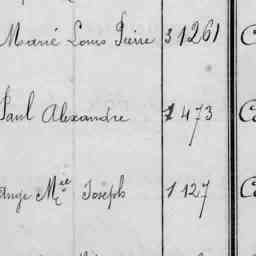 Marie Louis Pierre 3 1261
Paul Alexandre 1 473
Ange Mel Joseph 1 127